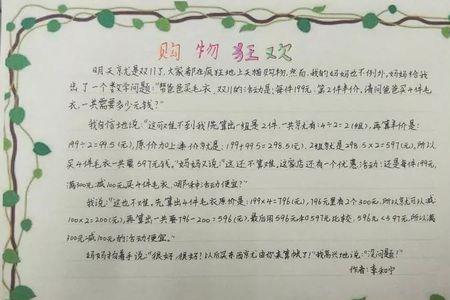 购物狂欢
明天就是双11了,大家都在疯狂地上天猫购物,然而,我的妈妈也不例外,妈妈给我
出了一个数学问题:“帮爸爸买毛衣,双11的活动是:每件199元,第2件半价。请问爸爸买4件毛
衣,一共需要多少元钱?”
我自信地说:“这可难不到我!先算出一组是2件,一共就有:4÷2=2(组),再算半价是:
199÷2=99.5(元),原价加上半价就是:199+99.5=298.5(元),2组就是298.5×2=597(元),所以
买4件毛衣一共要597元钱。”妈妈又说:“这还不算难,这家店还有一个优惠活动:还是每件199元,
满300元,减100元,买4件毛衣,哪种活动便宜?”
我说:“这也不难,先算出4件毛衣原价是:199×4=796元,796元里有2个300元,所以就可以减:
100×2=200(元),再算出一共要796-200=596(元),最后用596元和597元比较,596元<597元,所以满
300元减100元的活动便宜。”
妈妈拍着手说:“很好,很好!以后买东西就由你来算帐了!”我高兴地说:“没问题!”
作者:李知宁